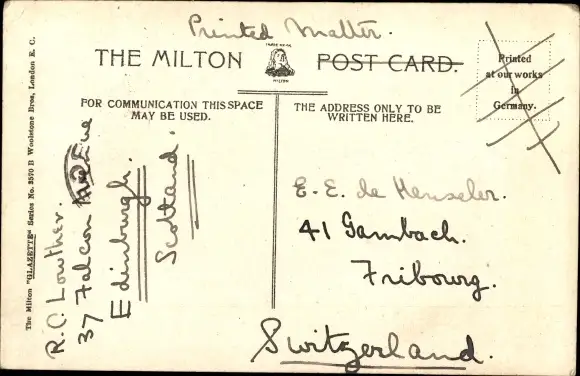 Printed Matter.
THE MILTON POST CARD.
MILTON
Printed
at our works
in
Germany.
FOR COMMUNICATION THIS SPACE
MAY BE USED.
THE ADDRESS ONLY TO BE
WRITTEN HERE.
The Milton "GLAZETTE" Series No. 3570 B Woolstone Bros, London E. C.
R. C. Lowther.
37 Falcon Avenue
Edinburgh.
Scotland.
E. E. de Henseler.
41 Gambach.
Fribourg.
Switzerland.